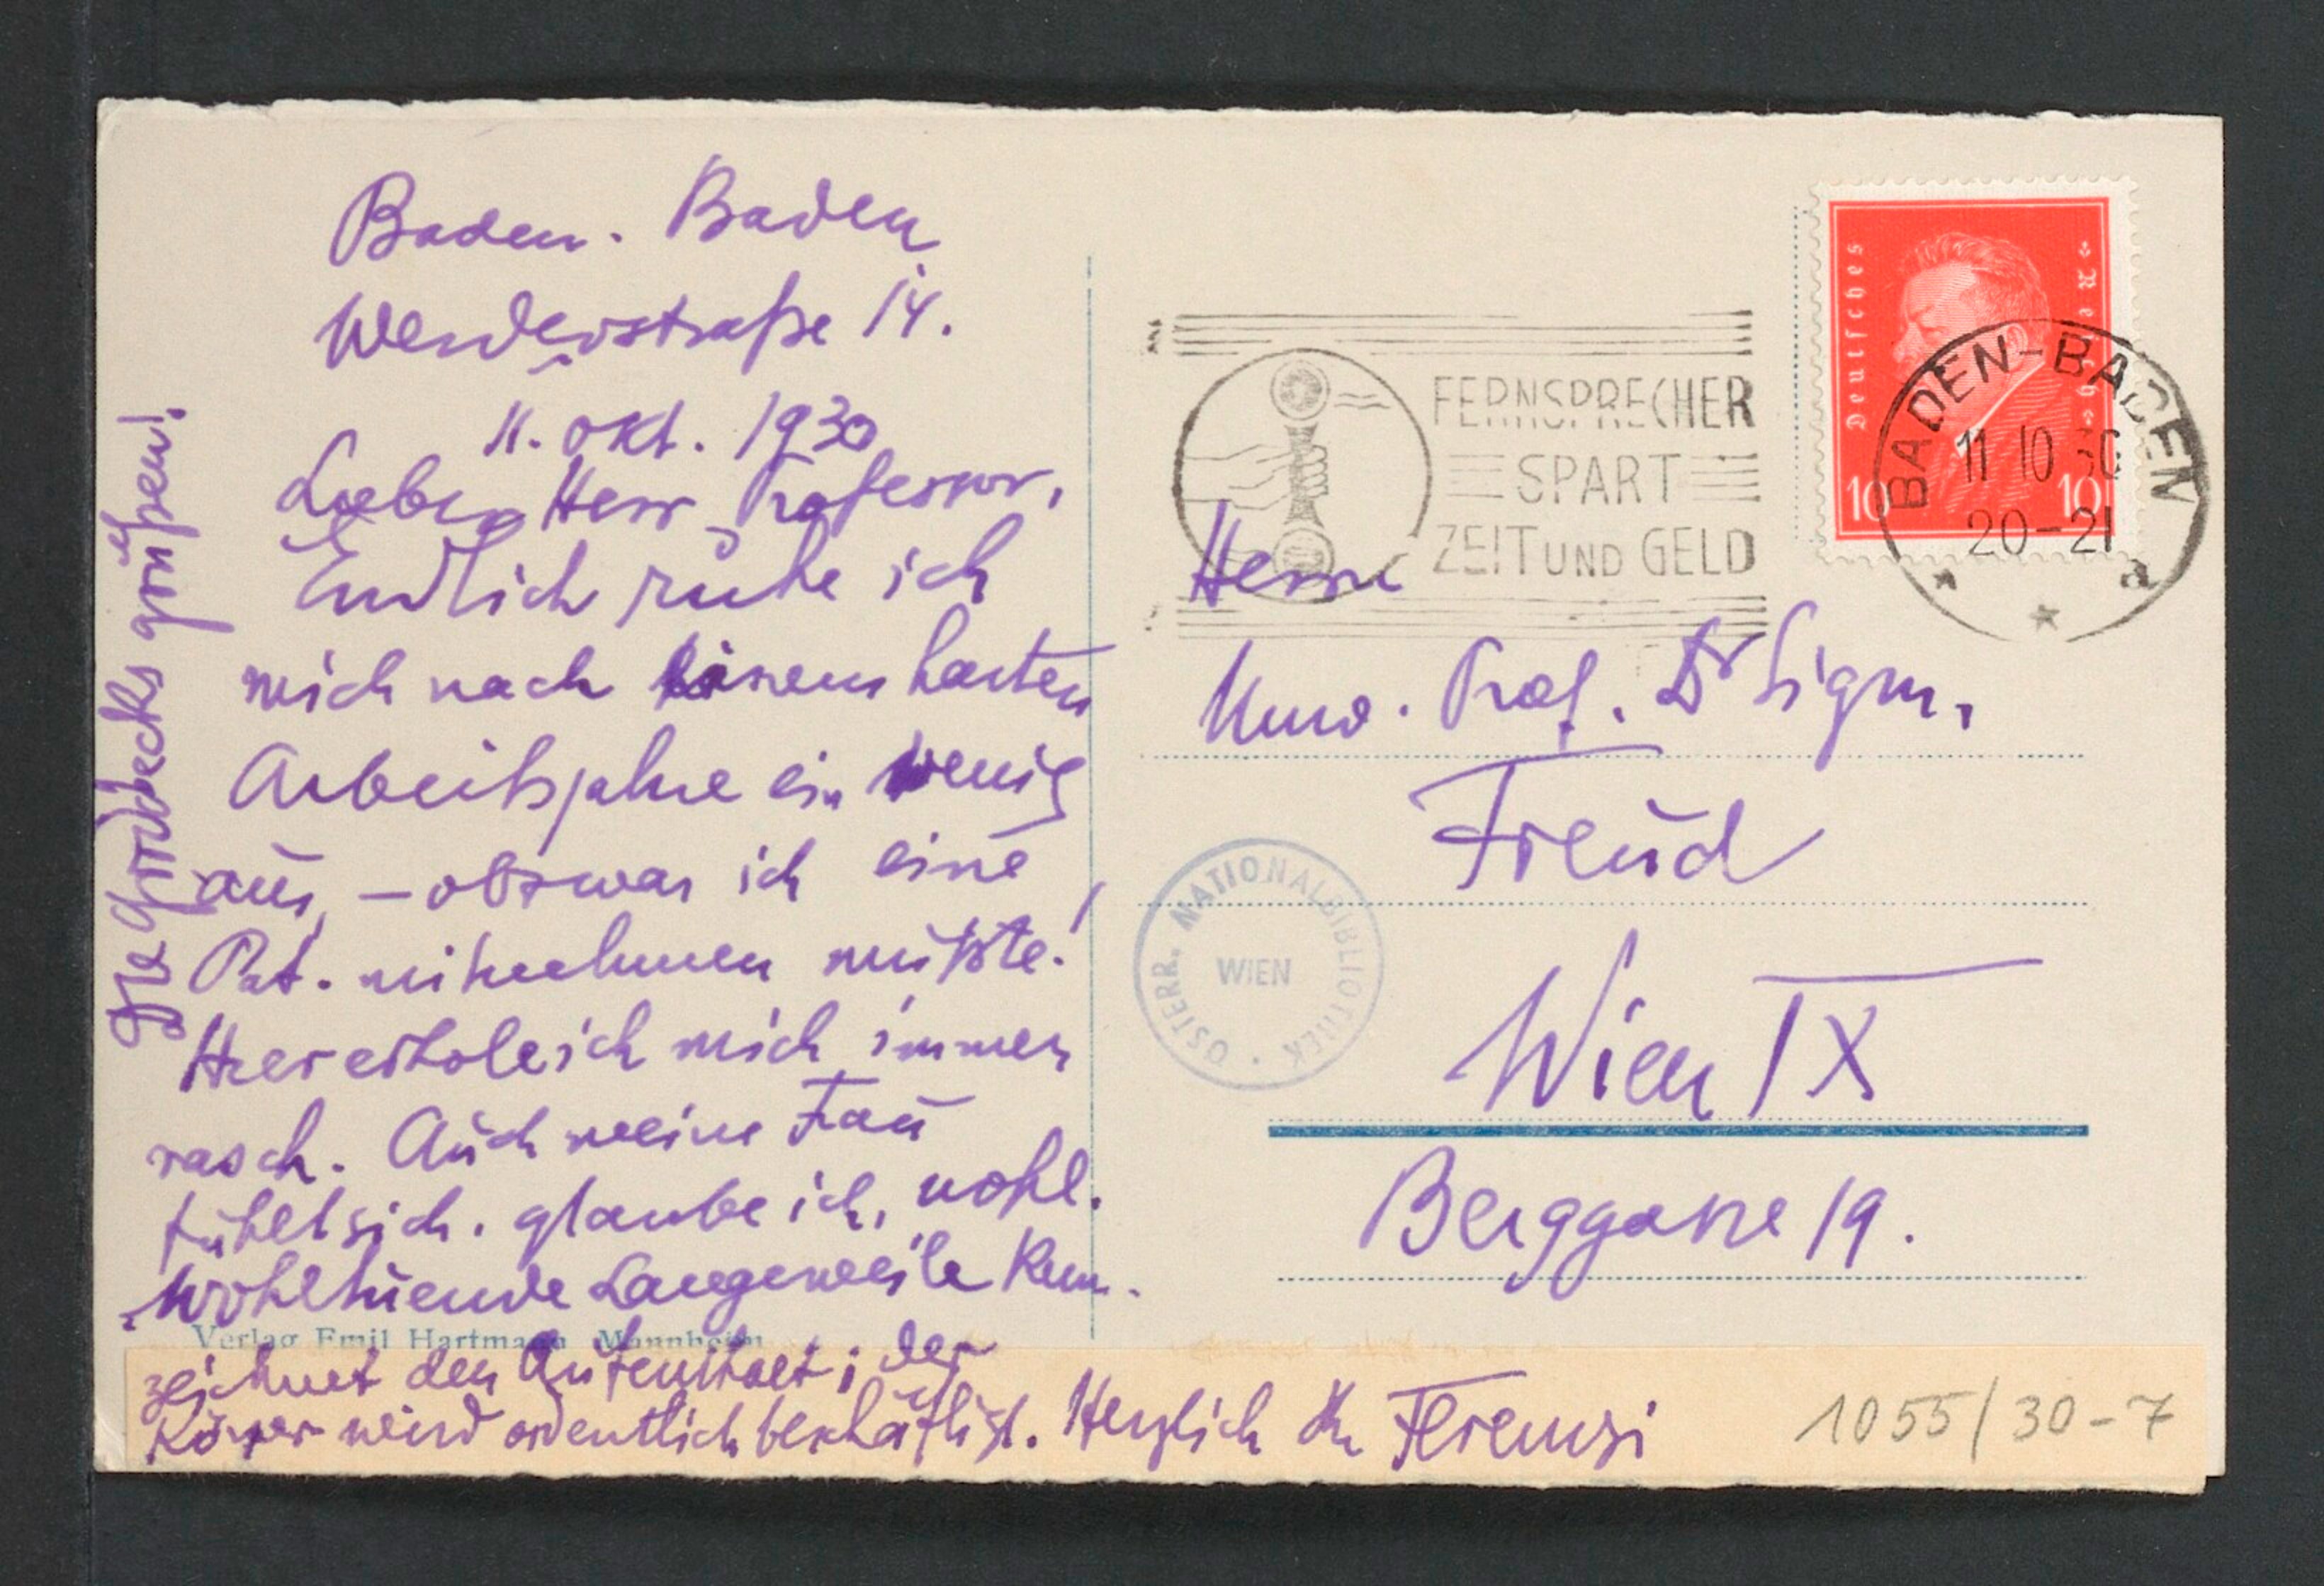 Baden-Baden
Werderstraße 14.
11. Okt. 1930
Lieber Herr Professor,
Endlich ruhe ich
mich nach einem harten
Arbeitsjahre ein wenig
aus, – obzwar ich eine
Pat. mitnehmen mußte!
Hier erhole ich mich immer
rasch. Auch meine Frau
fühlt sich, glaube ich, wohl.
Wohltuende Langeweile kenn-
zeichnet den Aufenthalt; der
Körper wird ordentlich beschäftigt. Herzlich Ihr Ferenczi
Groddecks grüßen!
Verlag Emil Hartmann, Mannheim
Deutsches Reich
10 10
BADEN-BADEN
11 10 30
20-21
a
FERNSPRECHER
SPART
ZEIT UND GELD
Herrn
Univ. Prof. Dr Sigm.
Freud
Wien IX
Berggasse 19.
ÖSTERR. NATIONALBIBLIOTHEK
WIEN
1055/30-7